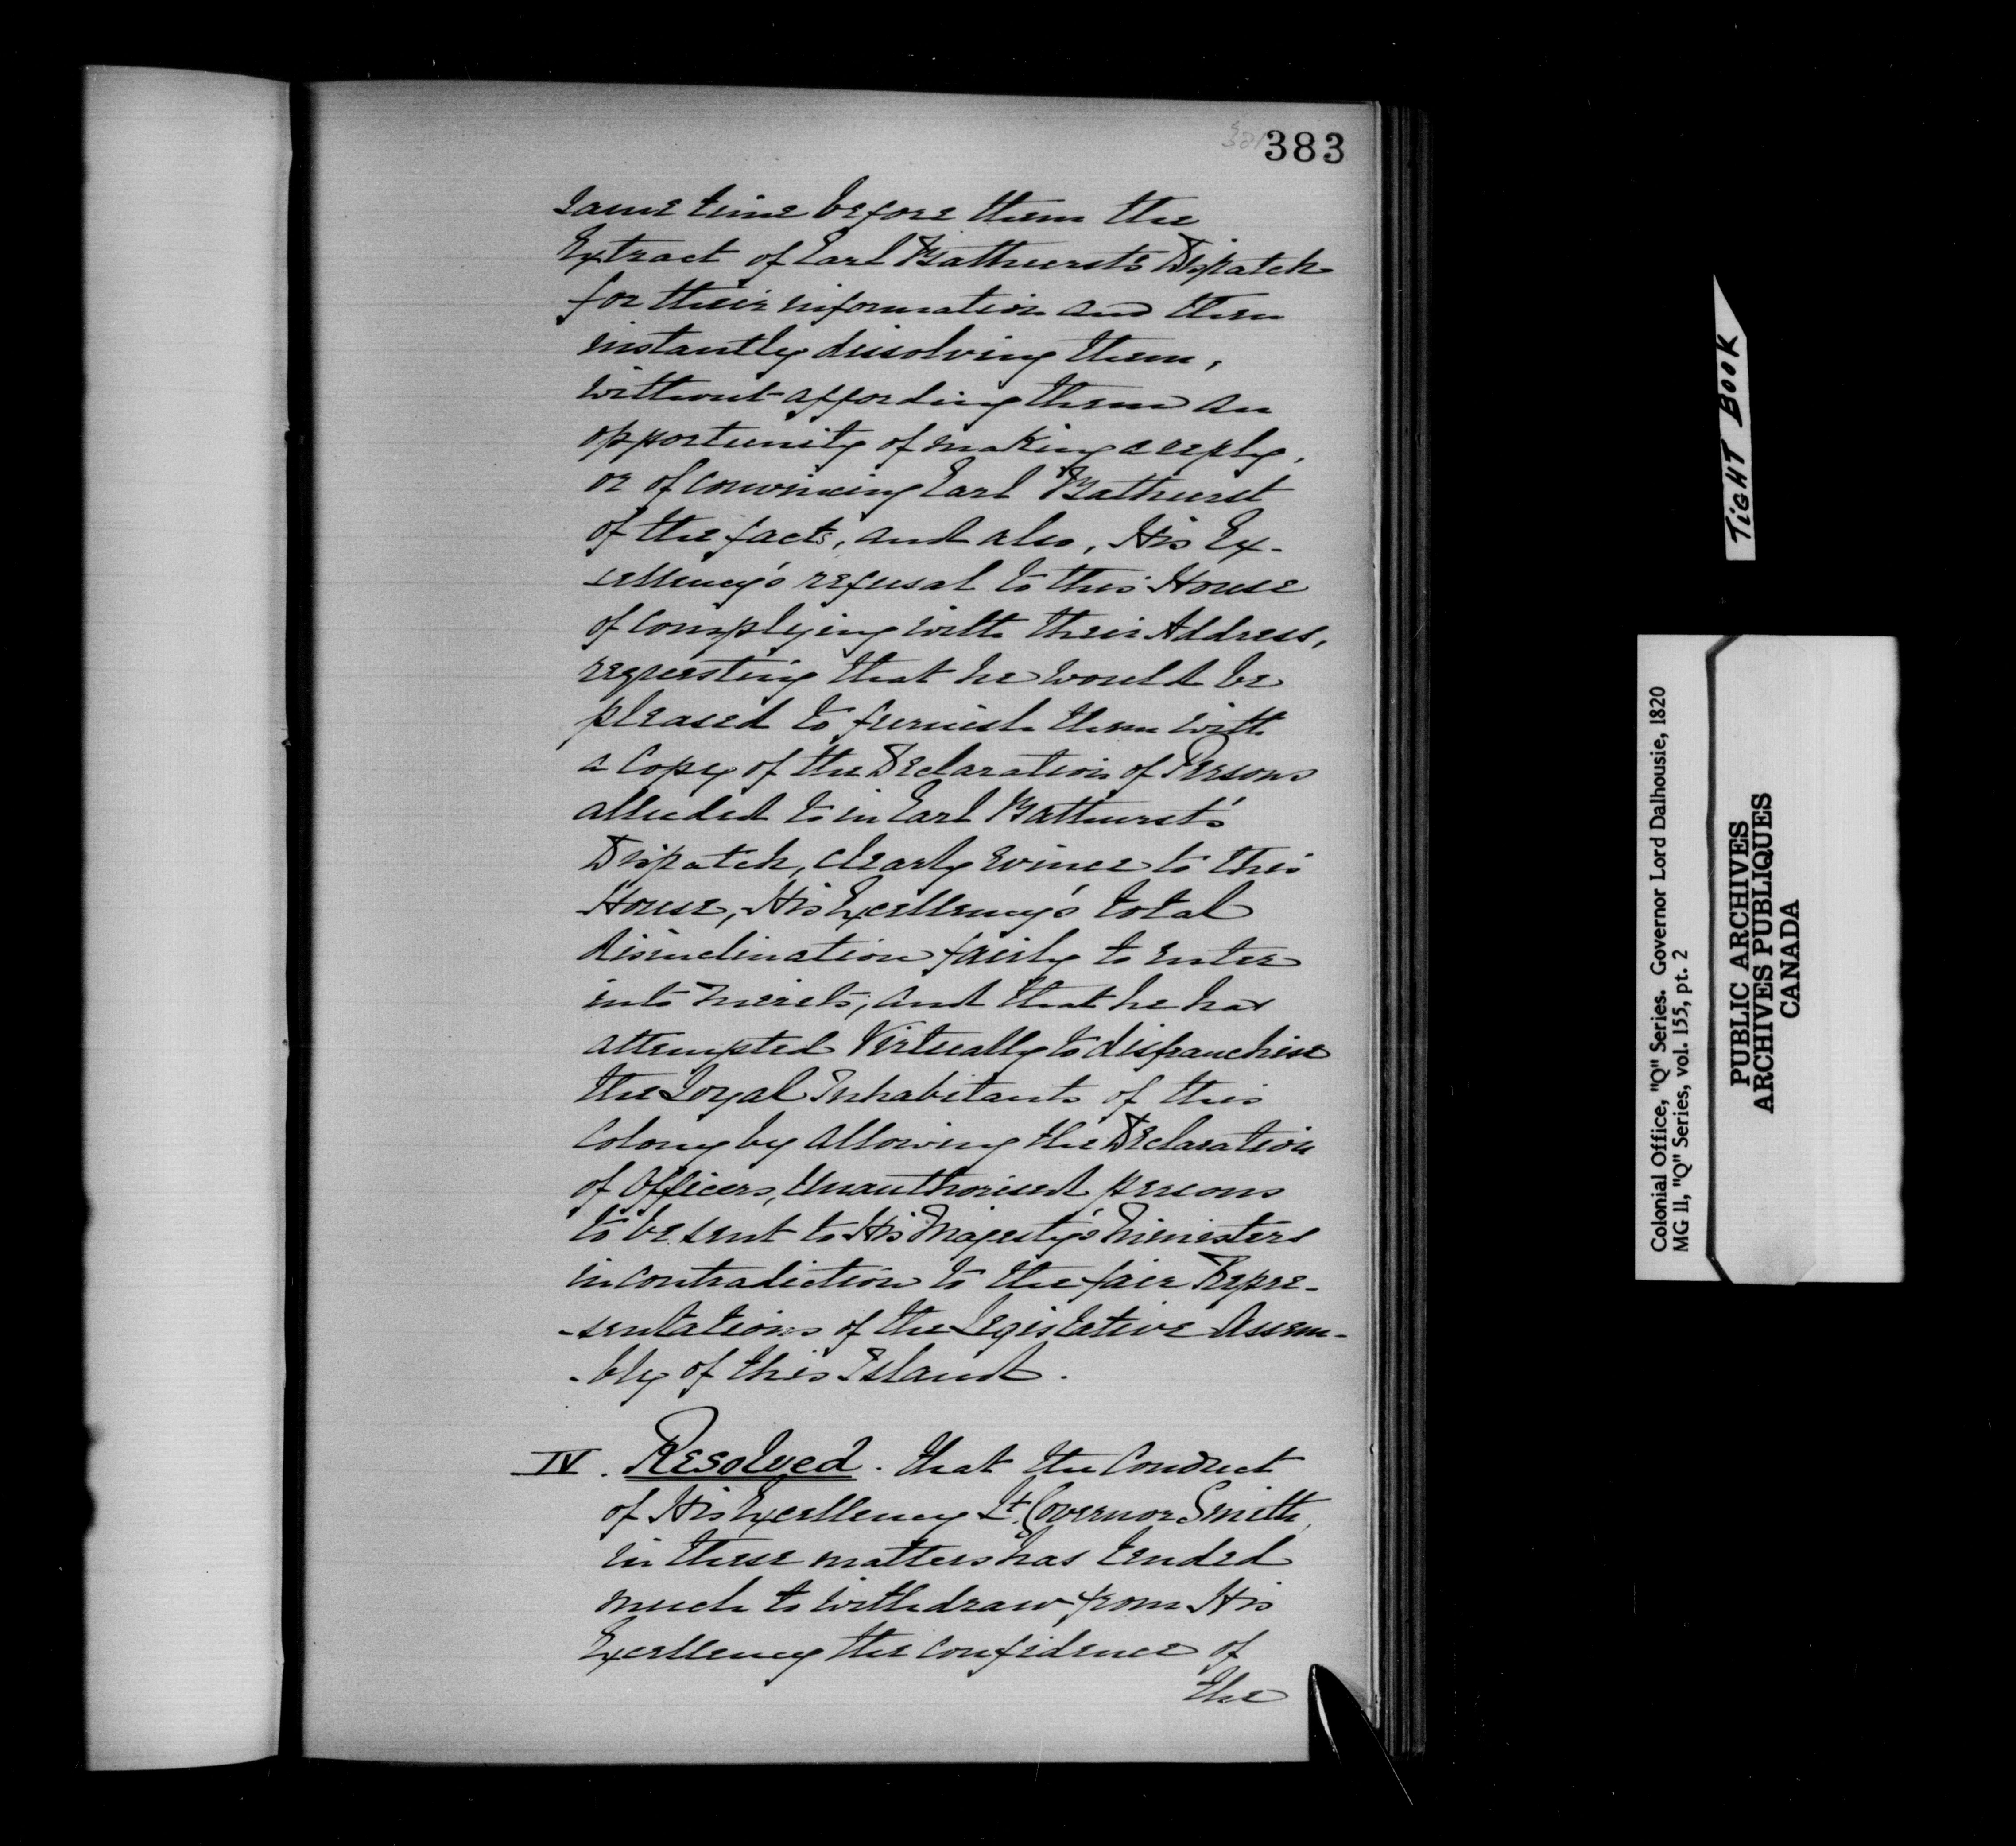 383
same time before them the
Extract of Earl Bathurst's Dispatch
for their information and then
instantly dissolving them,
without affording them an
opportunity of making a reply,
or of convincing Earl Bathurst
of the facts, and also, His Ex-
-cellency's refusal to this House
of complying with their Address,
requesting that he would be
pleased to furnish them with
a Copy of the Declaration of Persons
alluded to in Earl Bathurst's
Dispatch, clearly evince to this
House, His Excellency's total
disinclination fairly to enter
into merits, and that he has
attempted virtually to disfranchise
the Loyal Inhabitants of this
Colony by allowing the Declaration
of Officers, unauthorised persons
to be sent to His Majesty's Ministers
in contradiction to the fair Repre-
-sentations of the Legislative Assem-
-bly of this Island.
IV. Resolved. That the Conduct
of His Excellency Lt. Governor Smith,
in these matters has tended
much to withdraw from His
Excellency the confidence of
the
TIGHT BOOK
Colonial Office, "Q" Series. Governor Lord Dalhousie, 1820
MG 11, "Q" Series, vol. 155, pt. 2
PUBLIC ARCHIVES
ARCHIVES PUBLIQUES
CANADA